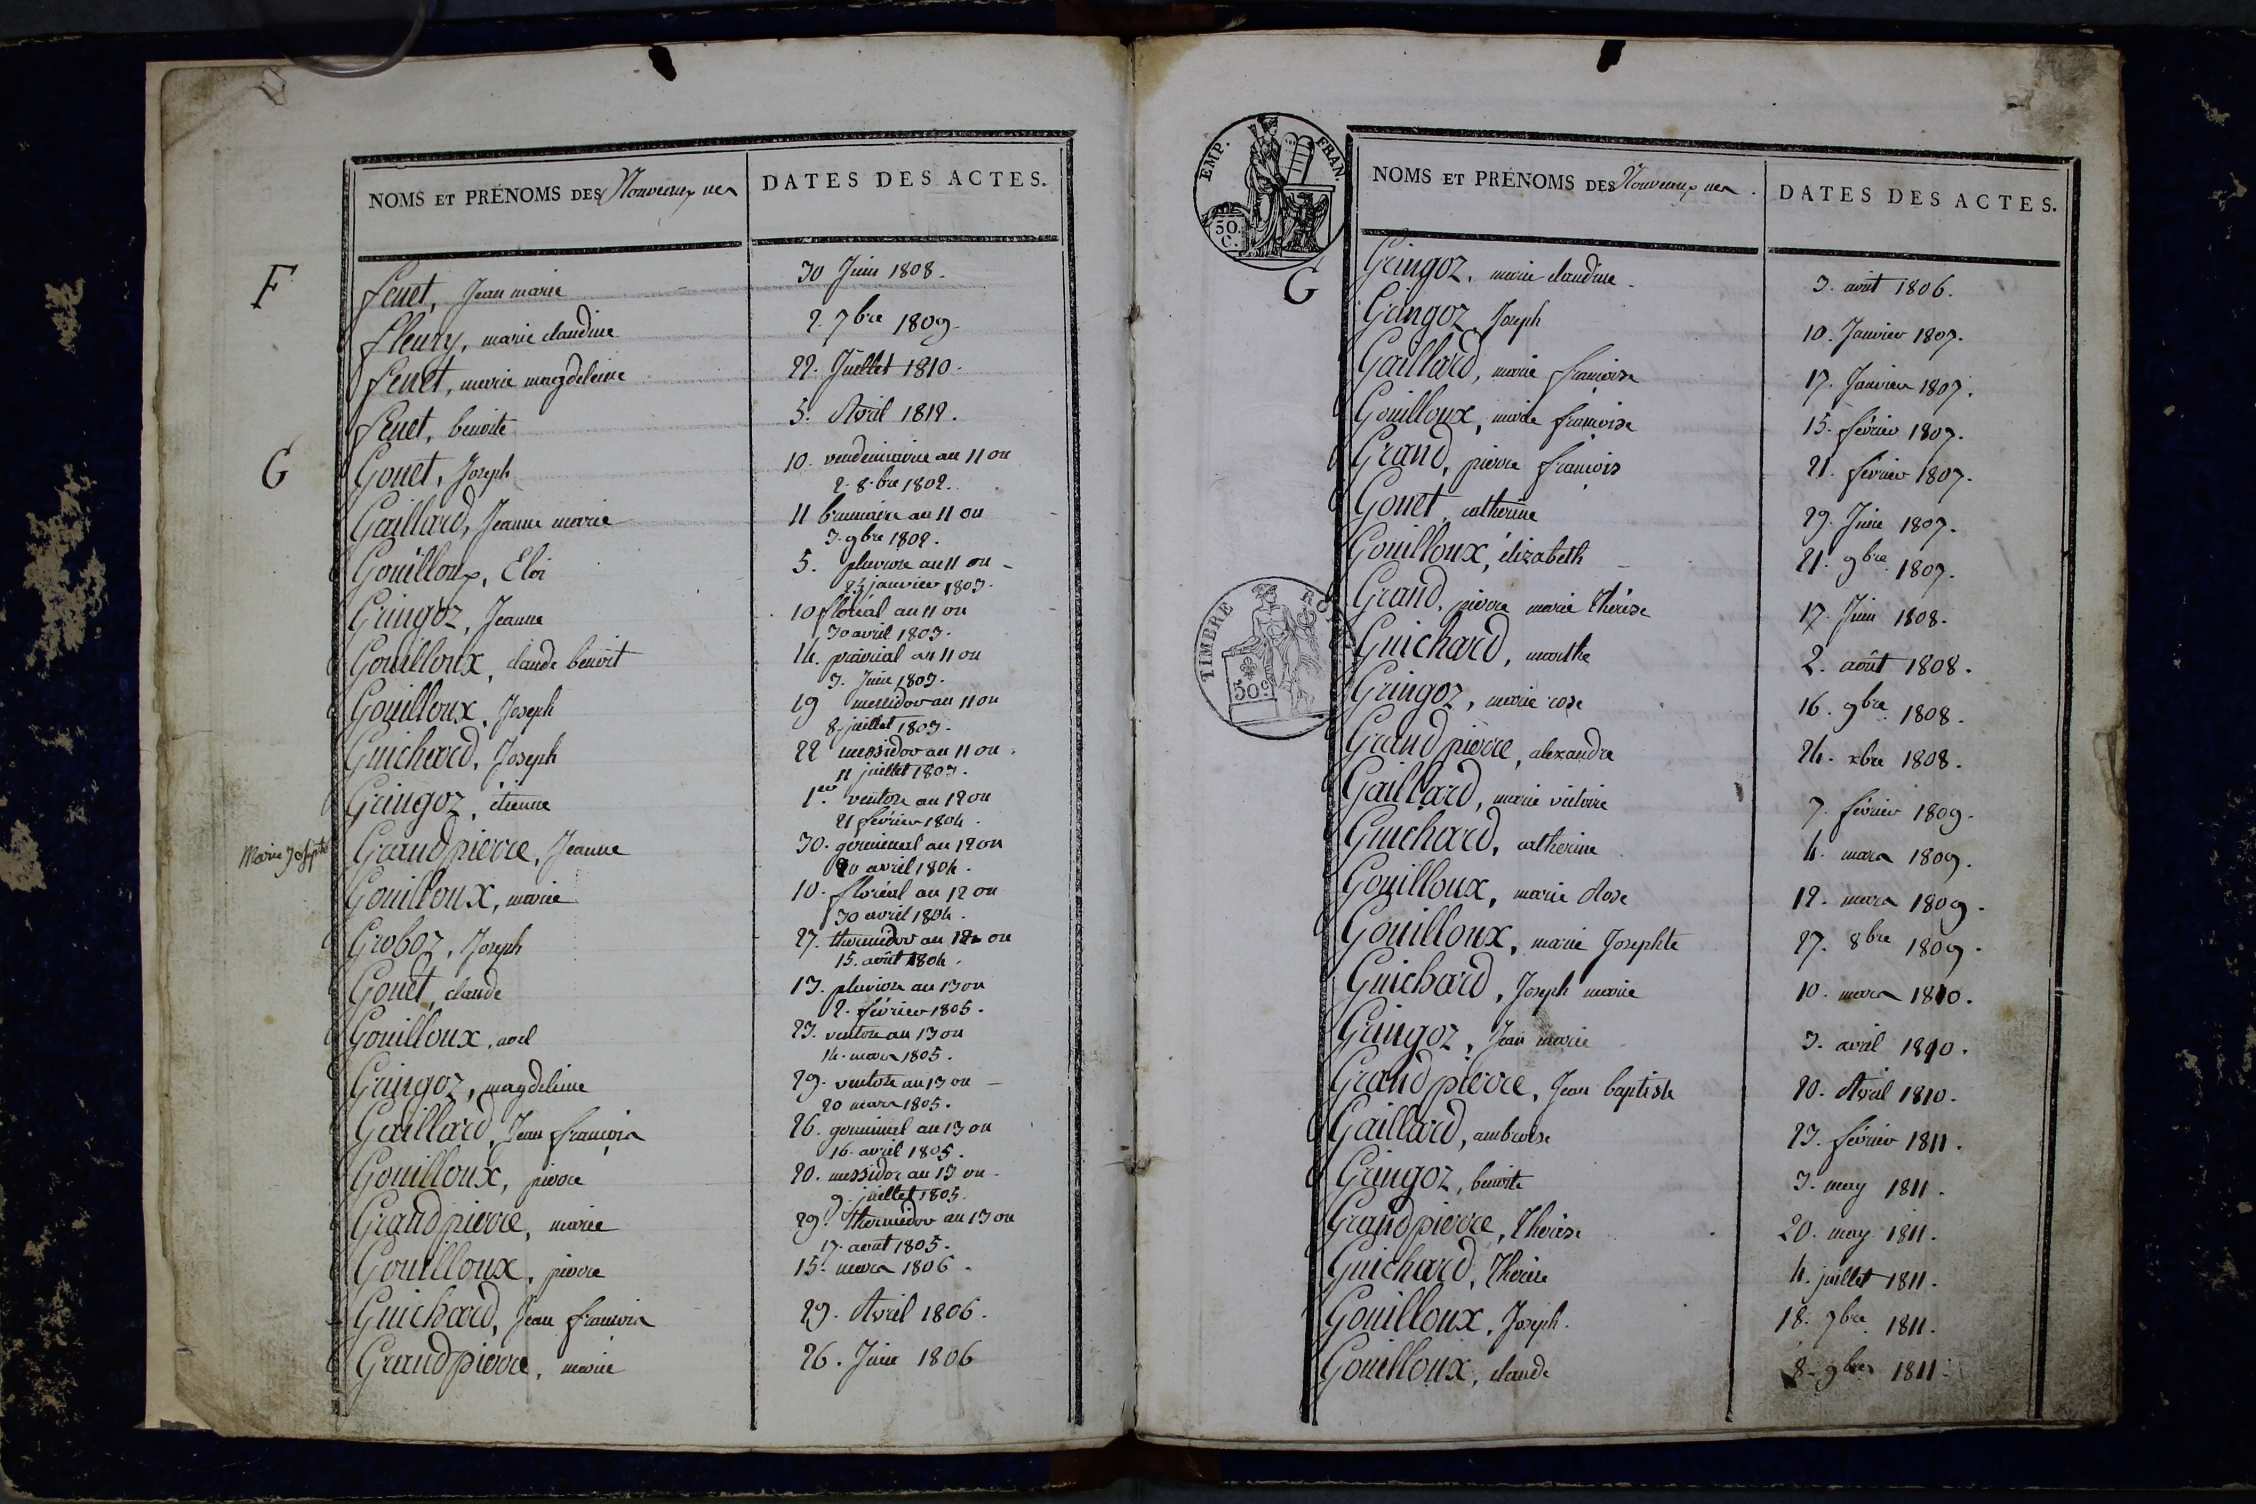 NOMS ET PRÉNOMS DES Nouveaux nes
DATES DES ACTES.
F
fenet, Jean marie 30 Juin 1808.
fleury, marie claudine 2. 7bre 1809.
fenet, marie magdeleine 22. Juillet 1810.
fenet, benoite 5. Avril 1812.
G
Gonet, Joseph 10. vendemiaire an 11 ou
2. 8.bre 1802.
Gaillard, Jeanne marie 11 brumaire an 11 ou
3. 9bre 1802.
Gouilloux, Eloi 5. pluviose an 11 ou
25 janvier 1803.
Gringoz, Jeanne 10 floréal an 11 ou
30 avril 1803.
Gouilloux, claude benoit 14. prairial an 11 ou
3. Juin 1803.
Gouilloux, Joseph 19 messidor an 11 ou
8. juillet 1803.
Guichard, Joseph 22 messidor an 11 ou.
11 juillet 1803.
Gringoz, étienne 1er ventose an 12 ou
21 février 1804.
Marie Josephte
Grandpierre, Jeanne 30. germinal an 12 ou
20 avril 1804.
Gouilloux, marie 10. floréal an 12 ou
30 avril 1804.
Groboz, Joseph 27. thermidor an 12 ou
15. août 1804.
Gonet, claude 13. pluviose an 13 ou
2. février 1805.
Gouilloux, noel 23. ventose an 13 ou
14. mars 1805.
Gringoz, magdeleine 29. ventose an 13 ou
20 mars 1805.
Gaillard, Jean françois 26. germinal an 13 ou
16. avril 1805.
Gouilloux, pierre 20. messidor an 13 ou
9. juillet 1805.
Grandpierre, marie 29. thermidor an 13 ou
17. août 1805.
Gouilloux, pierre 15. mars 1806.
Guichard, Jean françois 29. Avril 1806.
Grandpierre, marie 26. Juin 1806
EMP. FRAN.
50. C.
TIMBRE ROY
50c
NOMS ET PRÉNOMS DES Nouveaux nes.
DATES DES ACTES.
G
Gringoz, marie claudine. 3. août 1806.
Gringoz, Joseph 10. Janvier 1807.
Gaillard, marie françoise 17. Janvier 1807.
Gouilloux, marie françoise 15. février 1807.
Grand, pierre françois 21. février 1807.
Gonet, catherine 29. Juin 1807.
Gouilloux, élizabeth 21. 9bre 1807.
Grand, pierre marie thérèse 17. Juin 1808.
Guichard, marthe 2. août 1808.
Gringoz, marie rose 16. 9bre 1808.
Grandpierre, alexandre 24. xbre 1808.
Gaillard, marie victoire 7. février 1809.
Guichard, catherine 4. mars 1809.
Gouilloux, marie Rose 12. mars 1809.
Gouilloux, marie Josephte 27. 8bre 1809.
Guichard, Joseph marie 10. mars 1810.
Gringoz, Jean marie 3. avril 1810.
Grandpierre, Jean baptiste 20. Avril 1810.
Gaillard, ambroise 23. février 1811.
Gringoz, benoite 3. may 1811.
Grandpierre, thérèse 20. may 1811.
Guichard, thérèse 4. juillet 1811.
Gouilloux, Joseph. 18. 7bre 1811.
Gouilloux, claude 8. 9bre 1811.